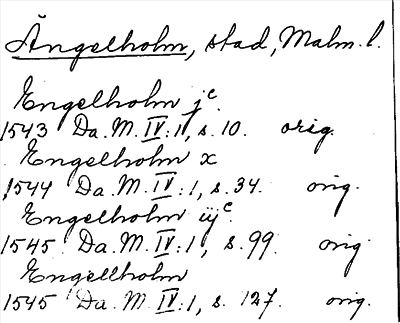 Ängelholm, stad, Malm. l.
Engelholm jc
1543 Da. M. IV:1, s. 10. orig.
Engelholm x
1544 Da. M. IV:1, s. 34. orig.
Engelholm iijc
1545 Da. M. IV:1, s. 99. orig.
Engellholm
1545 Da. M. IV:1, s. 127. orig.